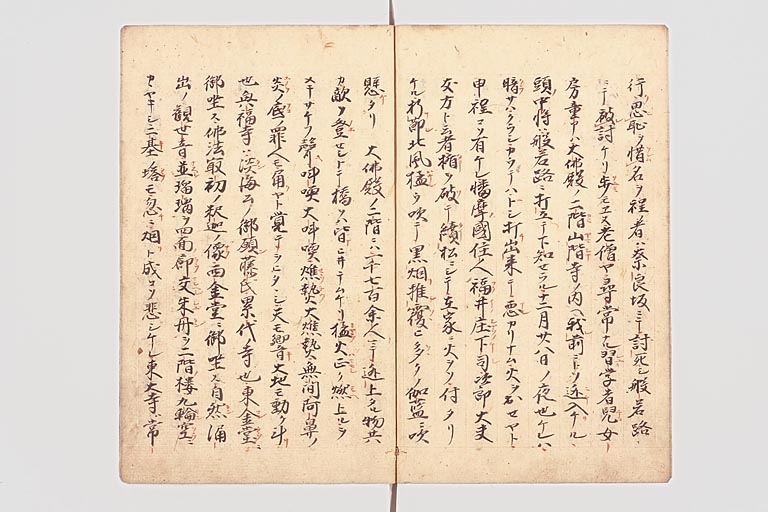 行思恥ヲ惜名ヲ程者ハ奈良坂ニテ討死シ般若路
ニテ被討ケリ歩モエヌ老僧ヤ尋常ナル習学者児女
房童部ハ大佛殿ノ二階山階寺ノ内ヘ我前ニトソ逃入ケル
頭中将ハ般若路ニ打立テ下知セラル十二月廿八日ノ夜也ケレハ
暗サハクラシ打出来テ悪カリナム火ヲ出セヤト
申程コソ有ケレ播摩國住人福井庄下司次郎大夫
友方ト云者楯ヲ破テ續松ニシテ在家ニ火ヲソ付タリ
ケル折節北風猛ク吹テ黒烟推覆ヒ多クノ伽藍ニ吹
懸タリ 大佛殿ノ二階ニハ千七百余人ニテ逃上タル物共
カ敵ヲ登セシトテ橋ヲハ皆引テケリ猛火正ク燃上レハ
ヲメキサケフ聲叫喚大叫喚焦熱大焦熱無間阿鼻ノ
炎ノ底ノ罪人モ角ヤト覚テヲヒタヽシ天モ響大地モ動ク斗
也興福寺ハ淡海公ノ御願藤氏累代寺也東金堂ニ
御坐ス佛法最初ノ釈迦ノ像西金堂ニ御坐ス自然涌
出ノ觀世音並瑠璃ヲ四面郎文朱丹ヲ二階楼九輪空ニ
カヽヤキシ二基ノ塔モ忽ニ烟ト成コソ悲シケレ東大寺ハ常